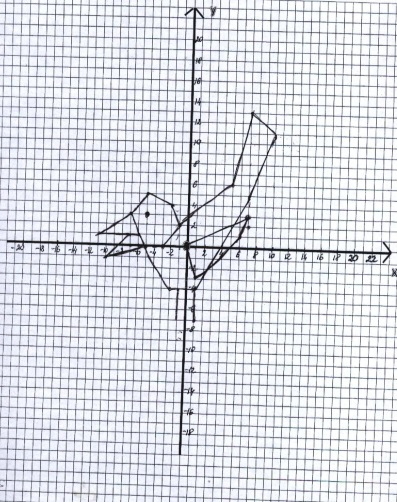 y
20
18
16
14
12
10
8
6
4
2
-20 -18 -16 -14 -12 -10 -8 -6 -4 -2 2 4 6 8 10 12 14 16 18 20 22
x
-6
-8
-10
-12
-14
-16
-18